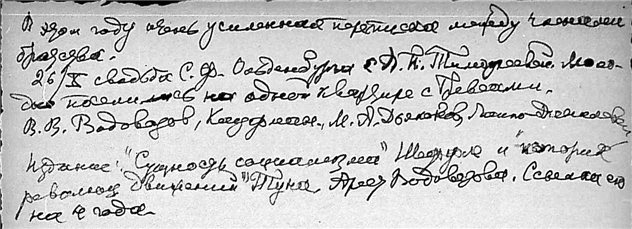 В этом году очень усиленная переписка между членами
братства.
26/X свадьба С. Ф. Ольденбурга с А. П. Тимофеевой. Моло-
дые поселились на одной квартире с Гревсами.
В. В. Водовозов, Кауфман, М. А. Дьяконов, Лаппо-Данилевский
Издание: "Сущность социализма" Шеффле и "История
революц движений" Туна. Арест Водовозова. Ссылка его
на 4 года.